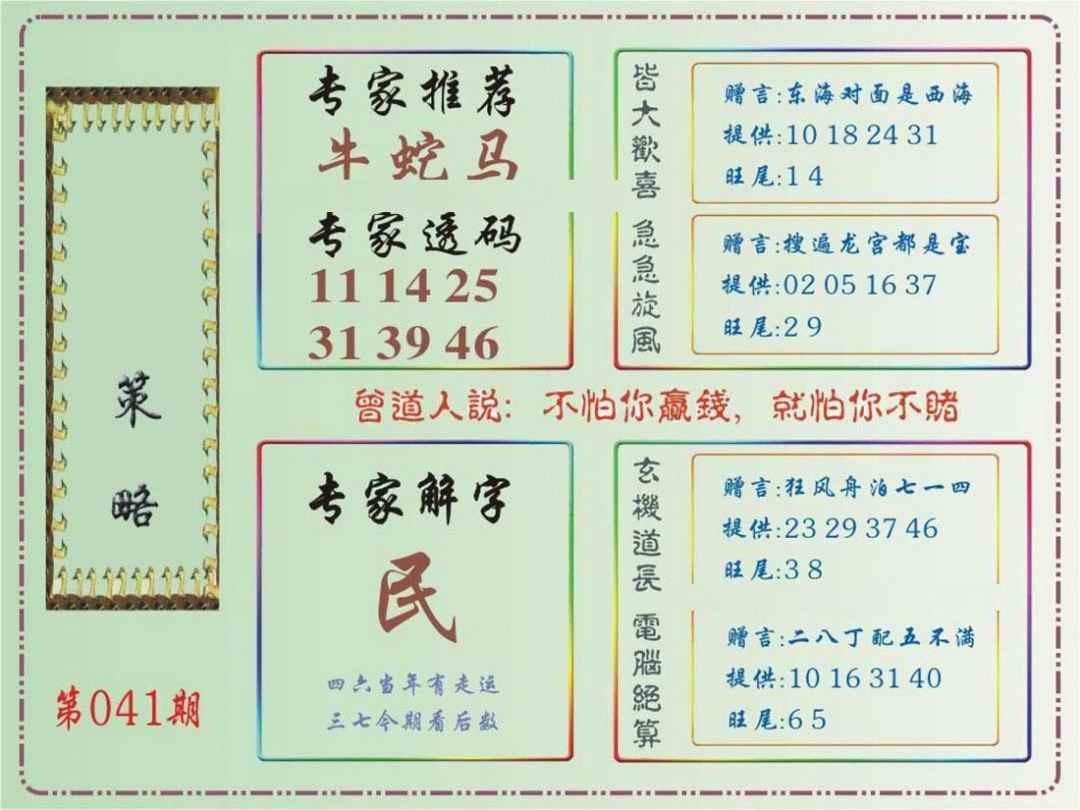 策
略
第041期
专家推荐
牛蛇马
专家透码
11 14 25
31 39 46
皆大歡喜
赠言:东海对面是西海
提供:10 18 24 31
旺尾:1 4
急急旋风
赠言:搜遍龙宫都是宝
提供:02 05 16 37
旺尾:2 9
曾道人説: 不怕你赢錢, 就怕你不賭
专家解字
民
四六当年有走运
三七今期看后数
玄機道長
赠言:狂风舟泊七一四
提供:23 29 37 46
旺尾:3 8
電腦絕算
赠言:二八丁配五不满
提供:10 16 31 40
旺尾:6 5